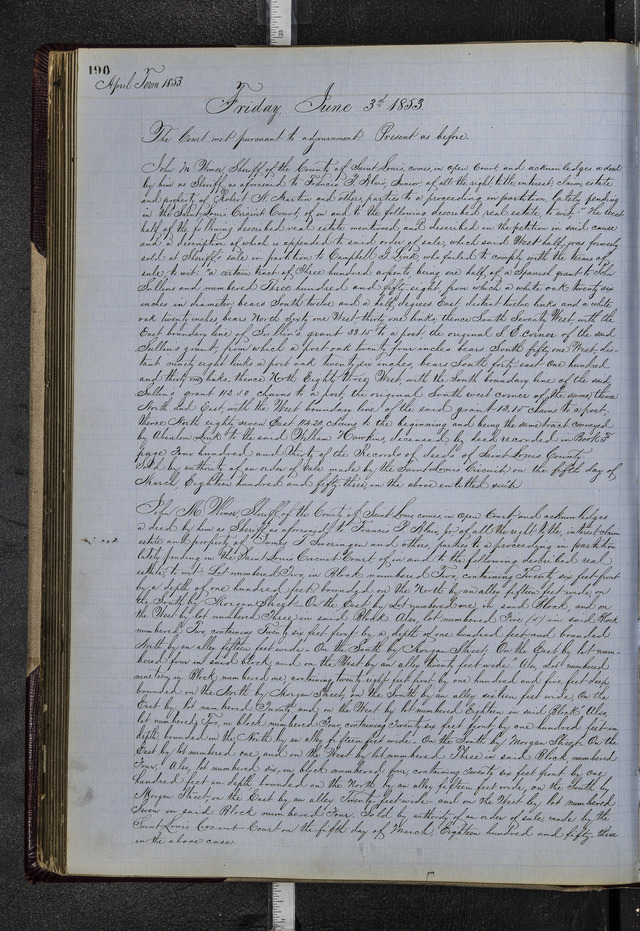 190
April Term 1853
Friday, June 3d 1853.
The Court met pursuant to adjournment. Present as before.
John M Wimer, Sheriff, of the County of Saint Louis, comes, in open Court and acknowledges a deed
by him as Sheriff as aforesaid to Francis P Blair, Junior, of all the right, title, interest, claim, estate
and property of Robert H. Martin and others, parties to a proceeding in partition, lately pending
in the Saint Louis Circuit Court, of in and to the following described real estate, to wit: "The West
half of the following described real estate mentioned and described in the petition in said cause
and a description of which is appended to said order of sale, which said West half, was formerly
sold at Sheriff's sale in partition to Campbell G Link, who failed to comply with the terms of
sale, to wit: "a certain tract of Three hundred arpents, being one half, of a Spanish grant to John
Sullins and numbered Three hundred and fifty eight, from which a white oak twenty six
inches in diameter, bears South twelve and a half degrees East, distant twelve links and a white
oak twenty inches, bears North Sixty one West thirty one links, thence South Seventy West, with the
East boundary line of Sullins grant 33.15 to a post, the original S E. corner of the said
Sullins grant, from which a post oak twenty four inches bears South fifty one West, dis-
tant ninety eight links a post oak twenty six inches, bears South forty east One hundred
and thirty one links, thence North Eighty three West, with the South boundary line of the said
Sullins grant 112.50 chains to a post the original South west corner of the same, thence
North East, with the West boundary line of the said grant chains to a post,
thence North eighty seven East 114.20 chains to the beginning and being the same tract conveyed
by Charlon Link to the said William Hawkins, deceased, by deed recorded in Book F
page Four hundred and thirty of the Records of Deeds of Saint Louis County.
Sold by authority of an order of sale made by the Saint Louis Circuit on the fifth day of
March, Eighteen hundred and fifty three, in the above entitled suit.
John M. Wimer Sheriff of the County of Saint Louis comes in open Court and acknowledges
a deed by him as Sheriff as aforesaid to Francis P Blair, Jr. of all the right, title, interest, claim
estate and property of James T Sweringen and others, parties to a proceeding in partition
lately pending in the Saint Louis Circuit Court of in and to the following described real
estate, to wit: Lot numbered Two in Block numbered Two, containing Twenty six feet front
by a depth of one hundred feet, bounded on the North by an alley fifteen feet wide, on
the South by Morgan Street. On the East by Lot numbered one, in said Block, and on
the West by lot numbered Three in said Block. Also, lot numbered Five (5) in said Block
numbered Two, containing Twenty six feet front by a depth of one hundred feet and bounded
North by an alley fifteen feet wide. On the South by Morgan Street. On the East by lot num-
bered four in said block and on the West by an alley twenty feet wide. Also, lot numbered
nineteen in Block numbered one, containing twenty eight feet front by one hundred and five feet deep,
bounded on the North by Morgan Street, on the South by an alley sixteen feet wide, On the
East by lot numbered Twenty and on the West by lot numbered Eighteen in said Block. Also,
lot numbered Two, in block numbered Four, containing Twenty six feet front by one hundred feet in
depth, bounded on the North by an alley fifteen feet wide. On the South by Morgan Street. On the
East by lot numbered one and on the West by lot numbered Three in said Block numbered
Four. Also, lot numbered six, in block numbered four, containing Twenty six feet front by one
hundred feet in depth bounded on the North by an alley fifteen feet wide, on the South by
Morgan Street, on the East by an alley Twenty feet wide and on the West by lot numbered
Seven in said Block numbered Four. Sold by authority of an order of sale, made by the
Saint Louis Circuit Court on the fifth day of March Eighteen hundred and fifty three
in the above case.